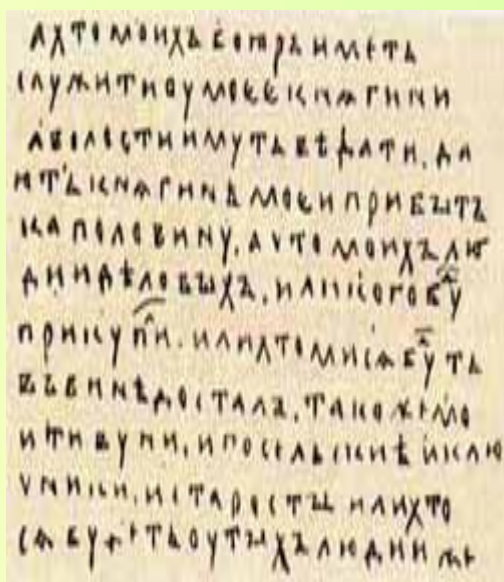 А ХТО МОИХЪ БОꙖРЪ ИМЕТЬ
СЛУЖИТИ ОУ МОЕЕ КНѦГИНИ
А ВОЛОСТИ ИМУТЬ ВѢДАТИ, ДА
ЮТЬ КНѦГИНѢ МОЕИ ПРИБЫТЪ
КА ПОЛОВИНУ, А ХТО МОИХЪ ЛЮ
ДИИ ДѢЛОВЫХЪ, ИЛИ КОГО БУ
ПРИКУПИ. ИЛИ ХТО МИ СѦ БУТЬ
ВЪ ВИНѢ ДОСТАЛЪ, ТАКОЖЕ МО
И ТИВУНИ, И ПОСЕЛЬСКИѢ И КЛЮ
ЧНИКИ, И СТАРОСТЫ ИЛИ ХТО
СѦ БУДЕТЬ ОУ ТЫХЪ ЛЮДИИ ЖЕ